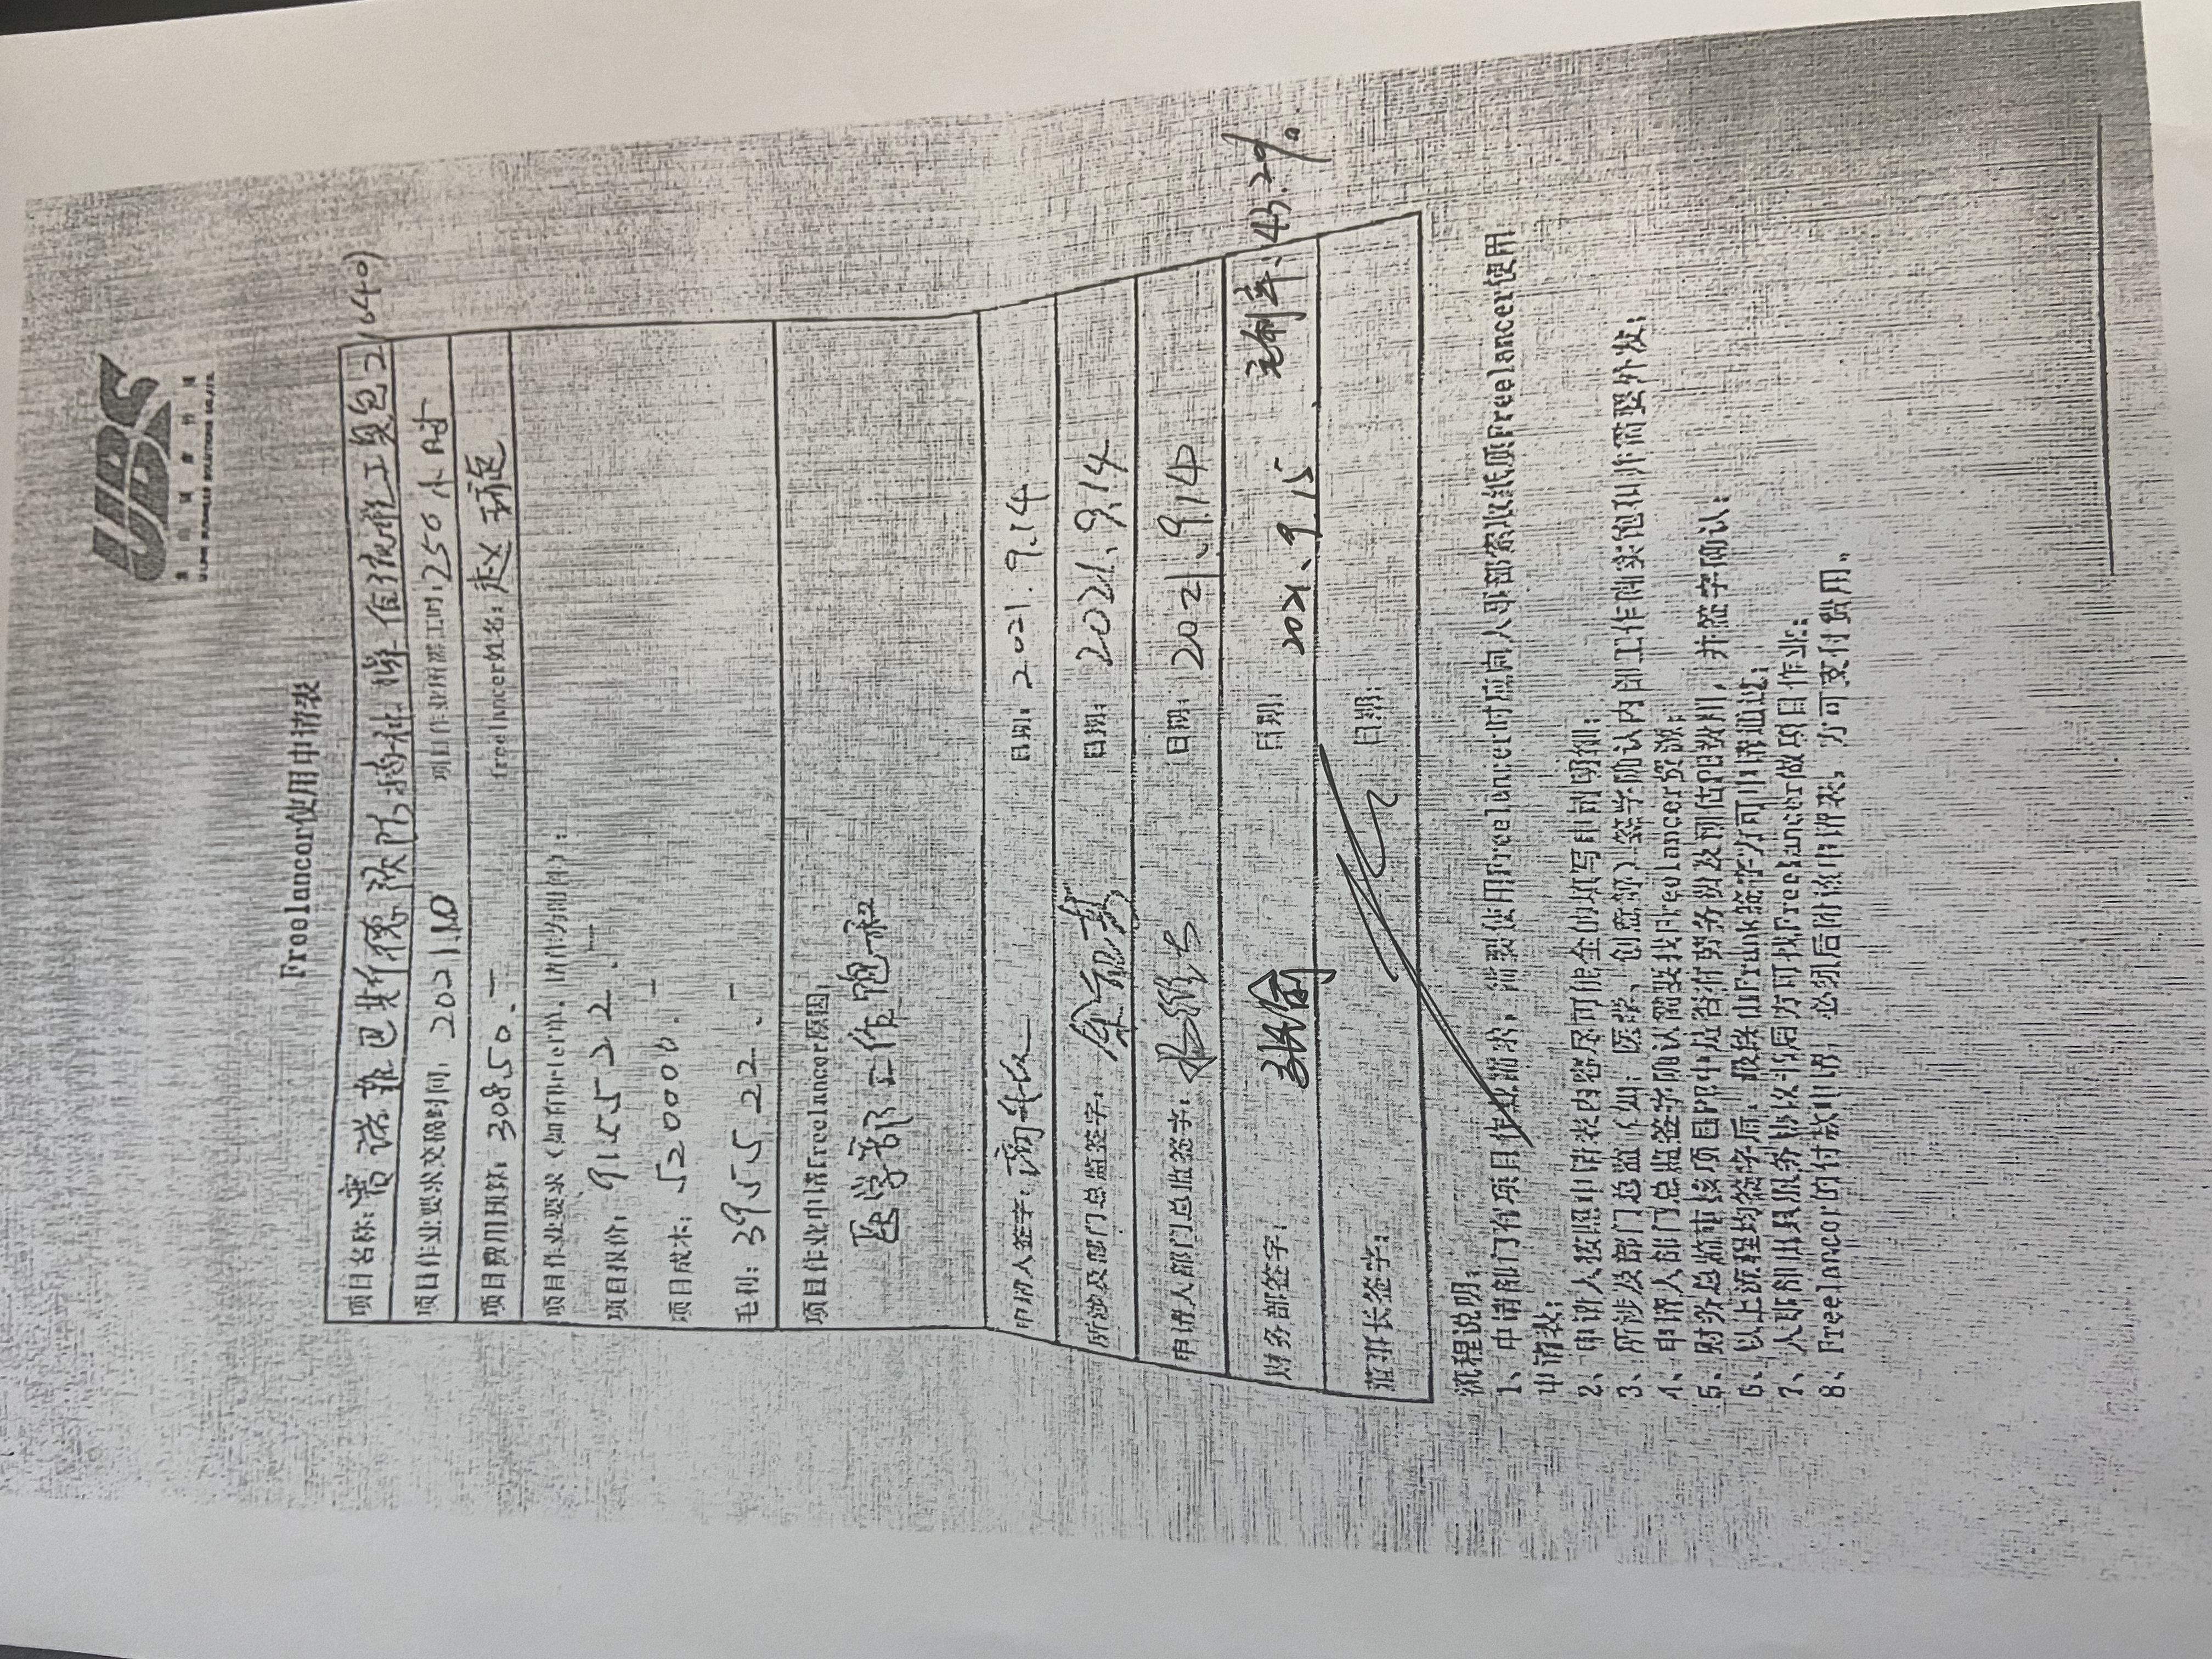 UBS
Freelancer使用申请表
项目名称：赛诺菲巴斯德 流程工具包2 1640)
项目作业要求交稿时间：2021.10 项目作业所需工时：250小时
项目费用预算：30850.- freelancer姓名：赵
项目作业要求（如有Brief单，请作为附件）：
项目报价：915522.-
项目成本：520000.-
毛利：39552 2.-
项目作业申请Freelancer原因：
医学部工作饱和
申请人签字： 日期：2021.9.14
所涉及部门总监签字： 日期：2021.9.14
申请人部门总监签字： 日期：2021.9.14
财务部签字： 日期：2021.9.15 毛利率：43.2%。
董事长签字： 日期：
流程说明：
1、申请部门有项目作业需求，需要使用Freelancer时应向人事部索取纸质Freelancer使用
申请表；
2、申请人按照申请表内容尽可能全的填写申请明细；
3、所涉及部门总监（如：医学、创意等）签字确认内部工作确实饱和并需要外发；
4、申请人部门总监签字确认需要找Freelancer资源；
5、财务总监审核项目PE中是否有劳务费及预估PE费用，并签字确认；
6、以上流程均签字后，最终由Frank签字方可申请通过；
7、人事部出具服务协议书后方可找Freelancer做项目作业；
8、Freelancer的付款申请，必须后附该申请表，方可支付费用。